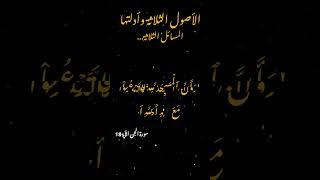 الأصول الثلاثة وأدلتها
المسائل الثلاثة..
وَأَنَّ ٱلْمَسَٰجِدَ لِلَّهِ فَلَا تَدْعُوا۟
مَعَ
سورة الجن الآية 18